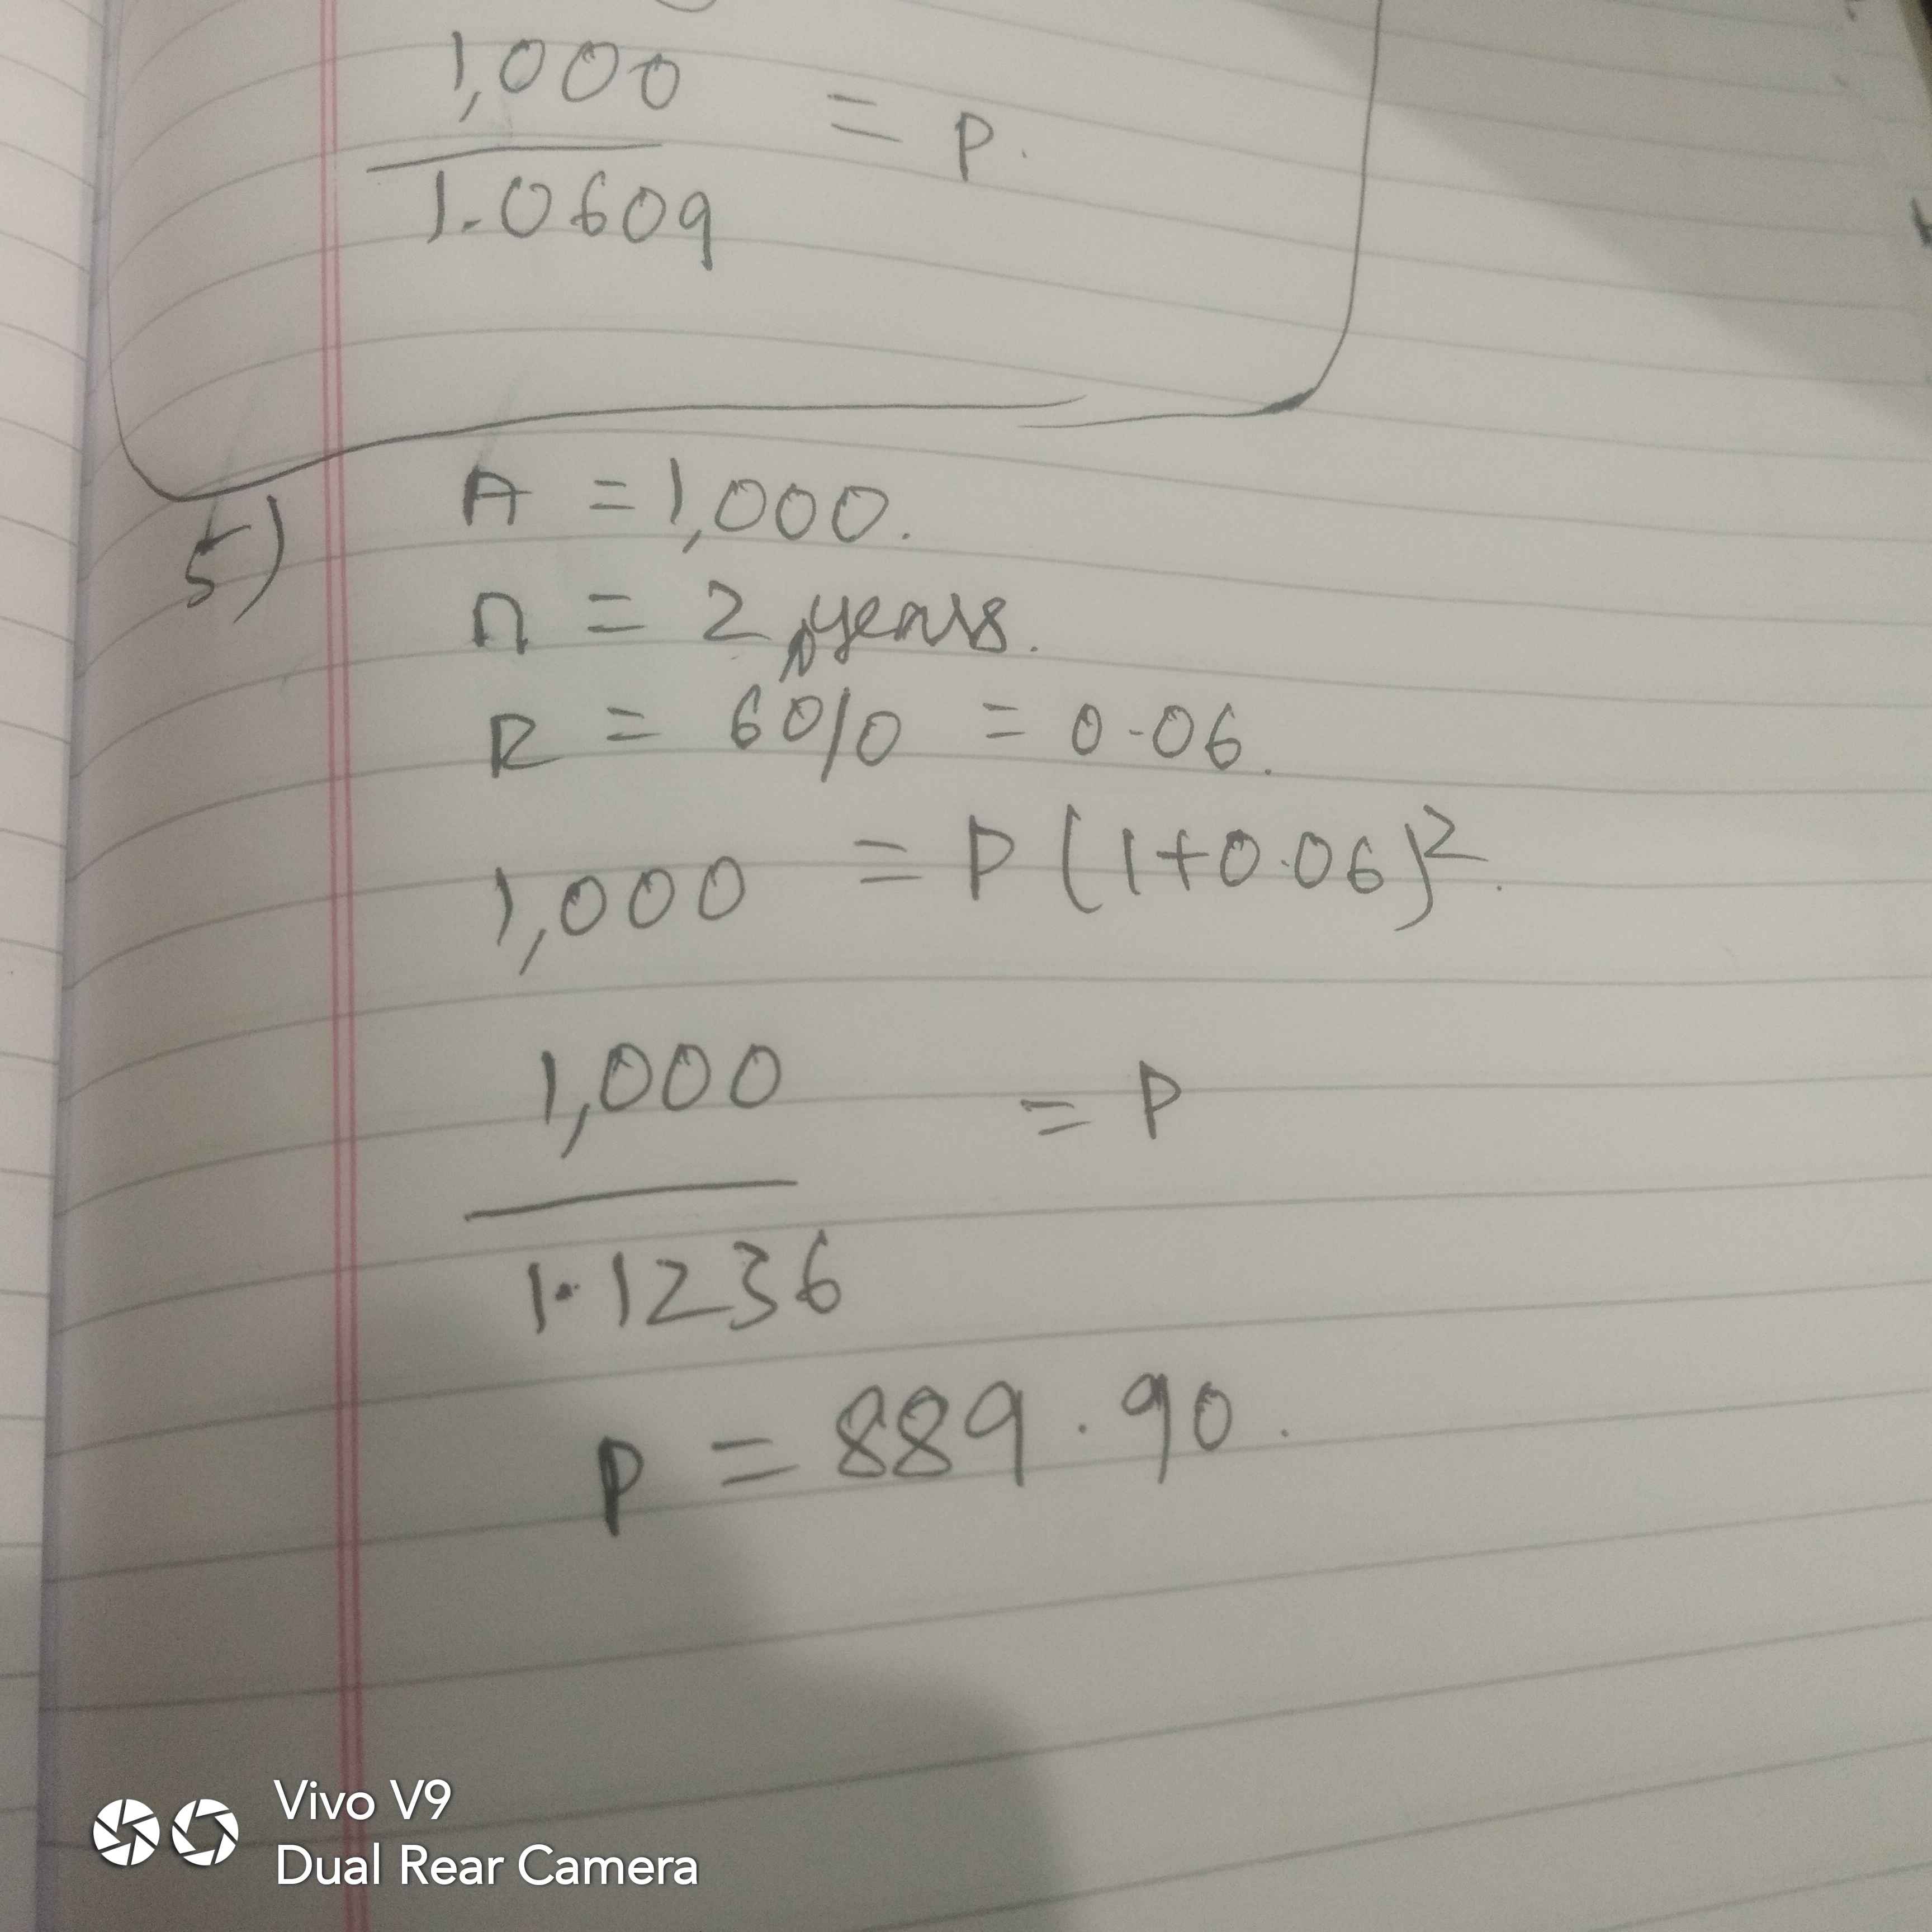 1,000
= P.
1.0609
5) A = 1,000.
n = 2 years.
R = 6% = 0.06.
1,000 = P (1+0.06)².
1,000
= P
1.1236
P = 889.90.
Vivo V9
Dual Rear Camera